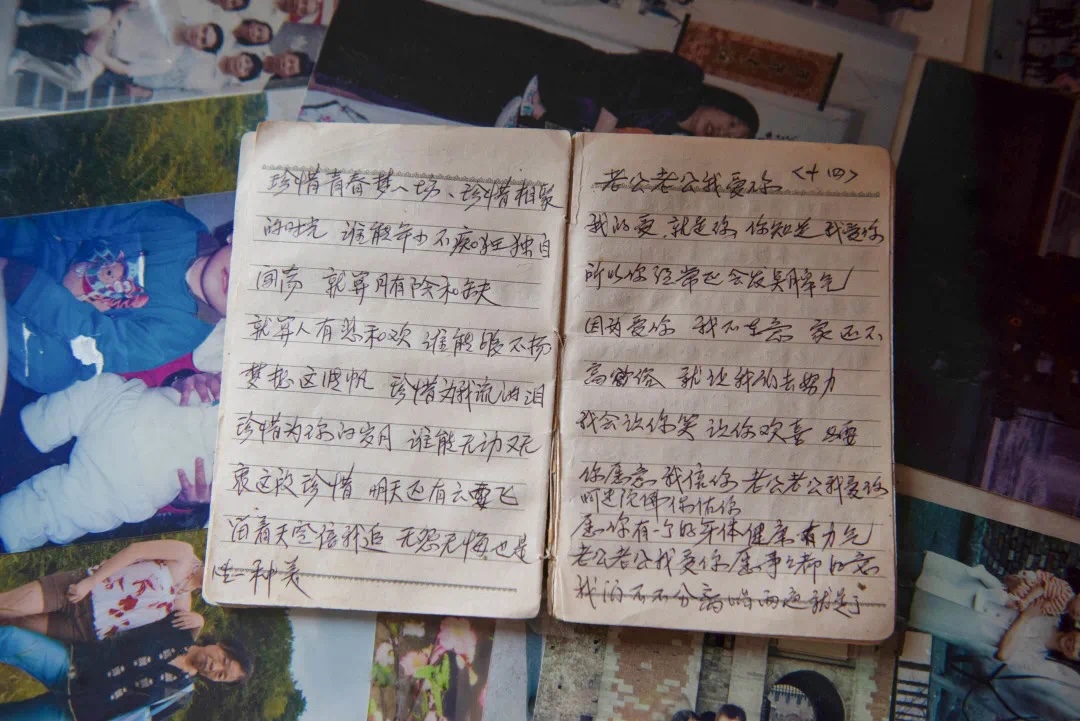 珍惜青春梦一场、珍惜相聚
的时光 谁能年少不痴狂 独自
闯荡 就算月有阴和缺
就算人有悲和欢 谁能够不扬
梦想这儿帆 珍惜为我流的泪
珍惜为你的岁月 谁能无动又无
衷这段珍惜 明天还有云要飞
留着天空 陪我追 无怨无悔也是
人生一种美
老公老公我爱你 <十四>
我的爱、就是你 你知道 我爱你
所以你经常也会发臭脾气
因为爱你 我不生意 家还不
富裕 就让我们去努力
我会让你笑 让你欢喜 只要
你愿意 我信你 老公老公我爱你
阿弥陀佛保佑你
愿你有一个好身体健康有力气
老公老公我爱你 愿事事都如意
我们 不分离